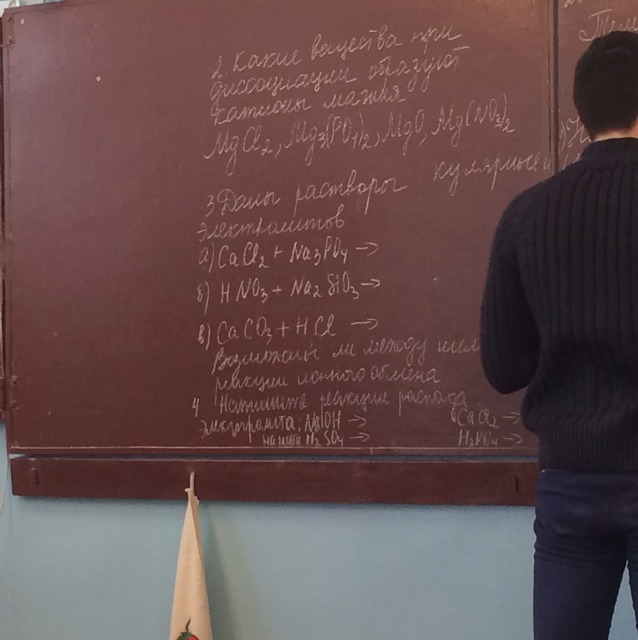 2. Какие вещества при
диссоциации образуют
катионы магния
MgCl₂, Mg₃(PO₄)₂, MgO, Mg(NO₃)₂
кулярны
3 Даны растворы
электролитов
а) CaCl₂ + Na₃PO₄ →
б) HNO₃ + Na₂SiO₃ →
в) CaCO₃ + HCl →
Возможны ли между ними
реакции ионного обмена
4 Напишите реакции распада
электролита: NaOH → CaCl₂ →
на ионы H₂SO₄ → H₃PO₄ →